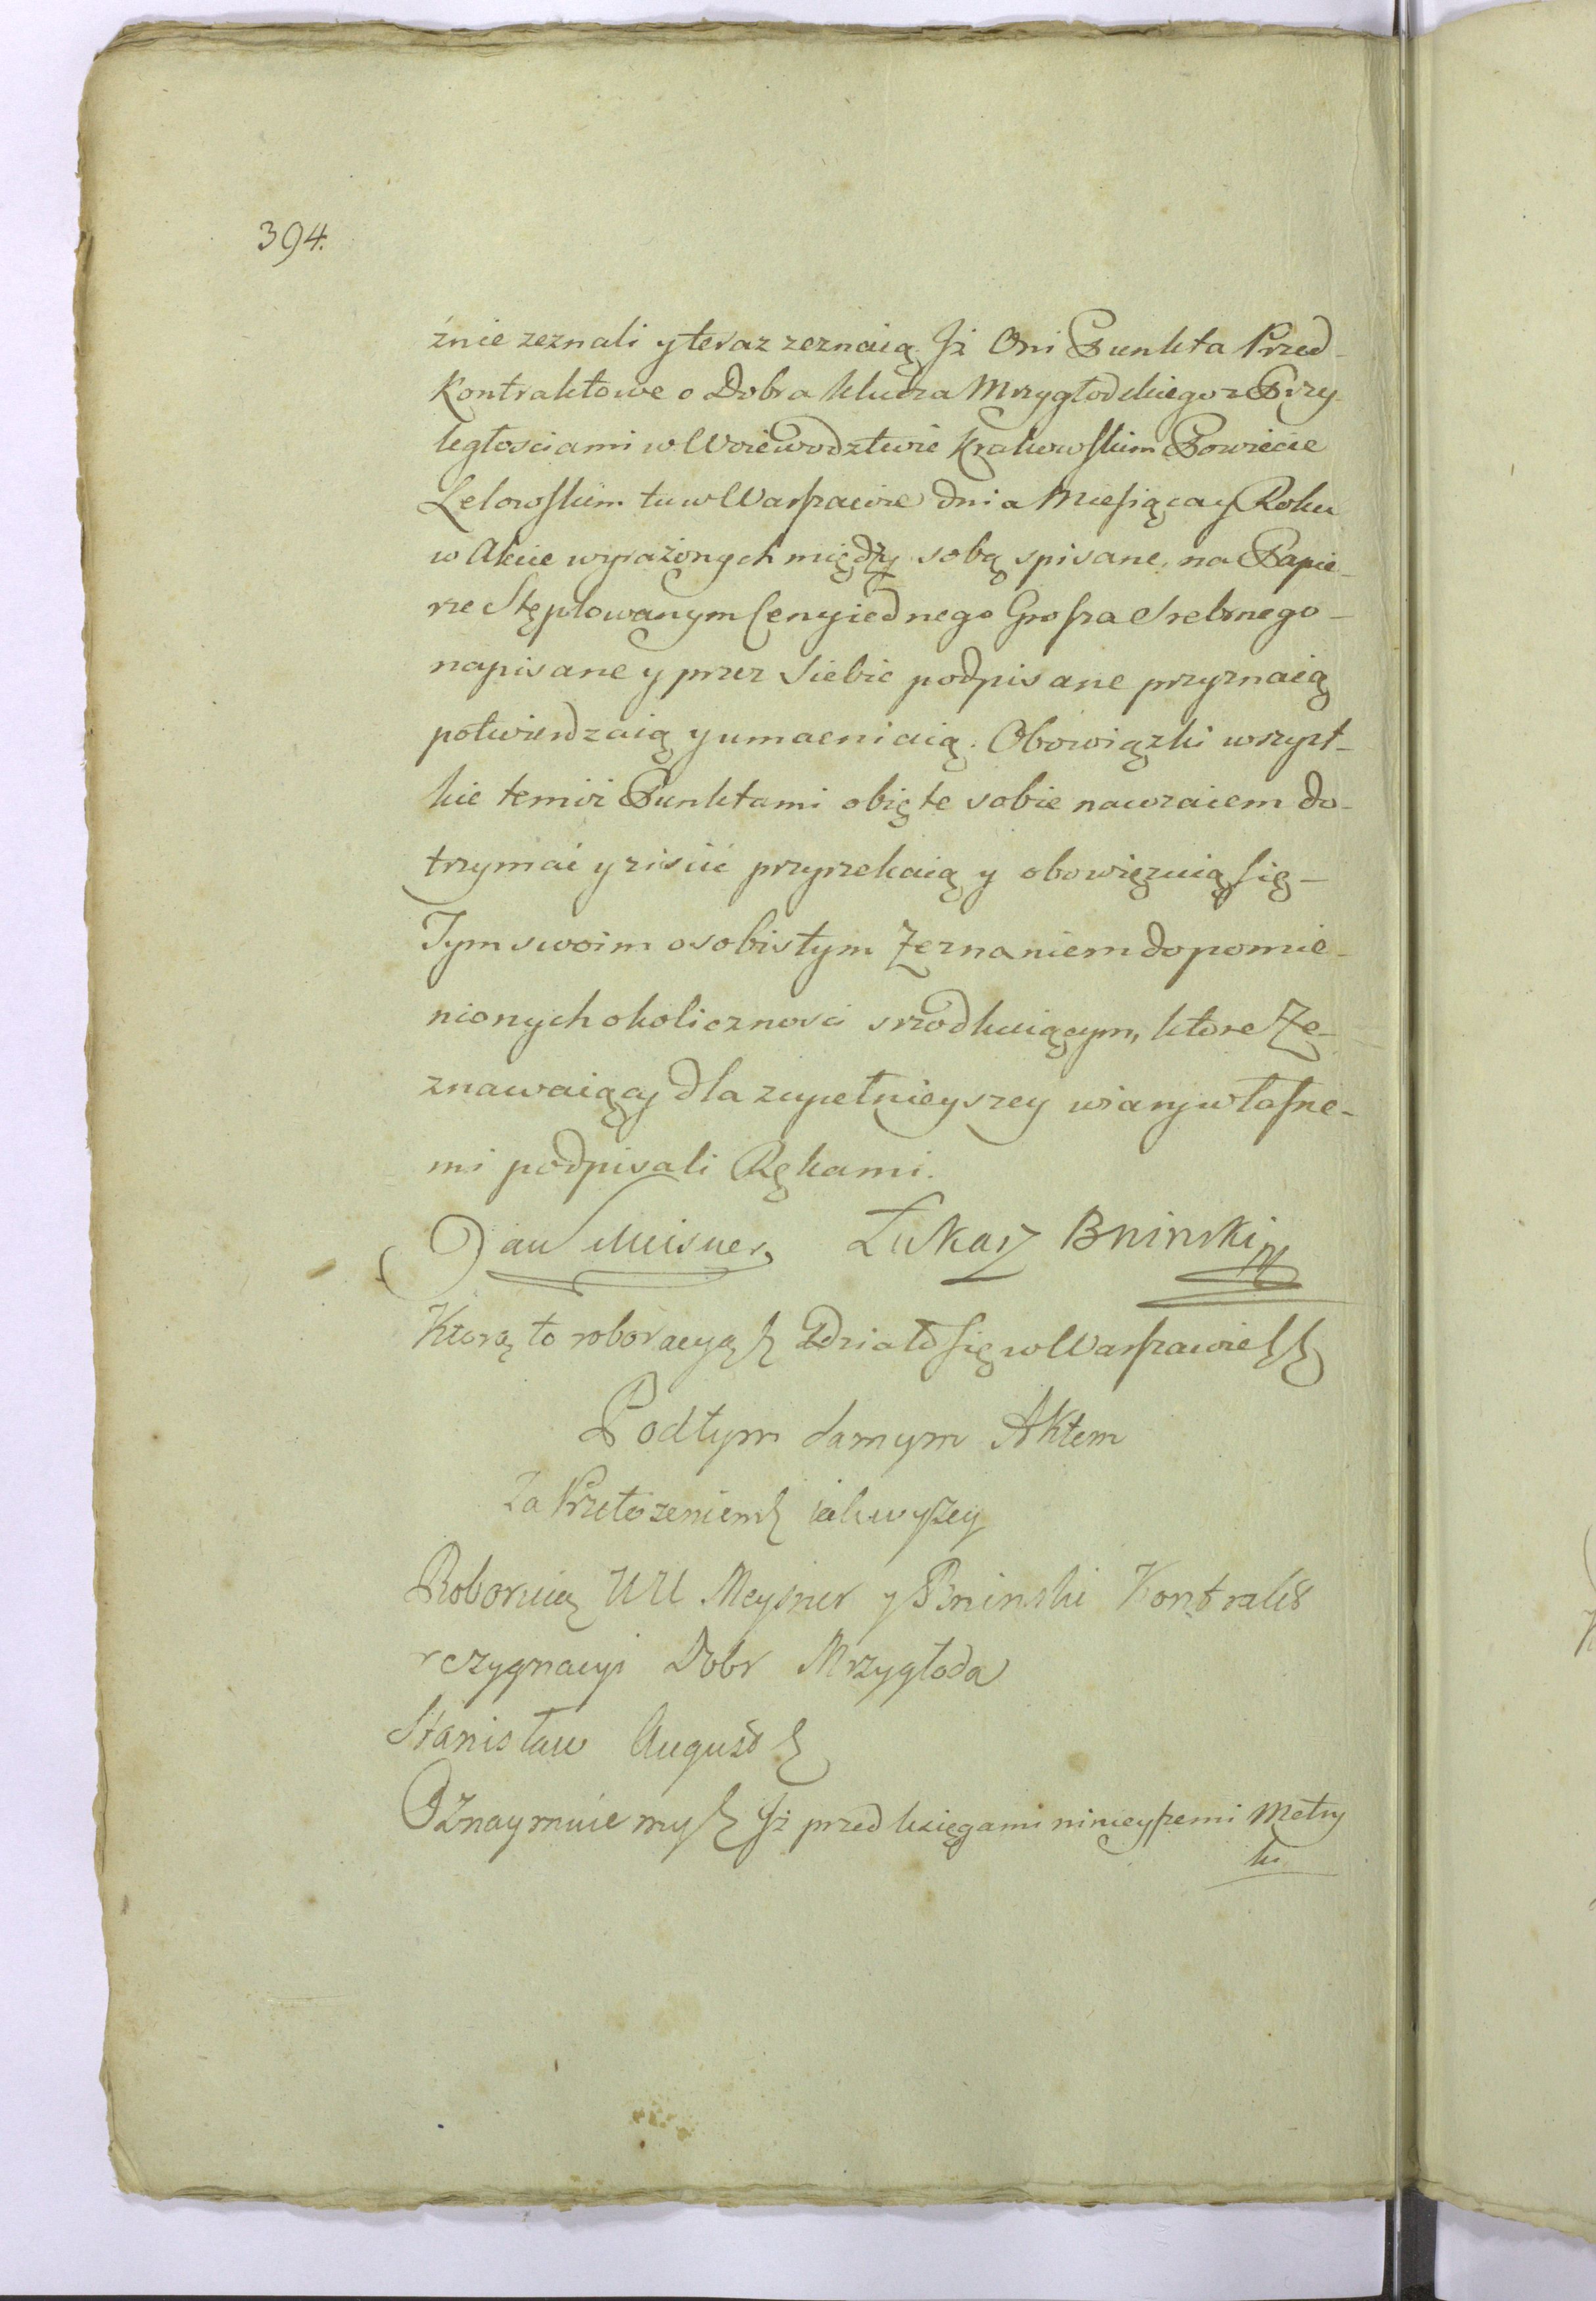 394.
źnie zeznali y teraz zeznaią Jż Oni Punkta Przed-
kontraktowe o Dobra klucza Mrzygłodzkiego z Przy
ległosciami w Woiewodztwie Krakowskim Powiecie
Lelowskim tu w Warszawie dnia Miesiąca y Roku
w Akcie wyrażonych między sobą spisane, na Papie-
rze Stęplowanym Ceny iednego Grosza Srebrnego-
napisane y przez siebie podpisane przyznaią
potwierdzaią y umacniaią. Obowiązki wszyst-
kie temiż Punktami obięte sobie nawzaiem do-
trzymać y ziscić przyrzekaią y obowięzuią się-
Tym swoim osobistym Zeznaniem do pomie-
nionych okolicznosci srzodkuiącym, ktore Ze-
znawaiący dla zupełnieyszey wiary własne-
mi podpisali Rękami.
Jan Meisner Łukasz Bninski
Ktorą to roboracyą Działo się w Warszawie
Pod tym samym Aktem
Za Przełożeniem iak wyszey
Roboruią UU Meysner y Bninski Kontrakt
rezygnacyi Dobr Mrzygłoda
Stanisław August
Oznaymuiemy Jż przed księgami ninieyszemi Metry
ki